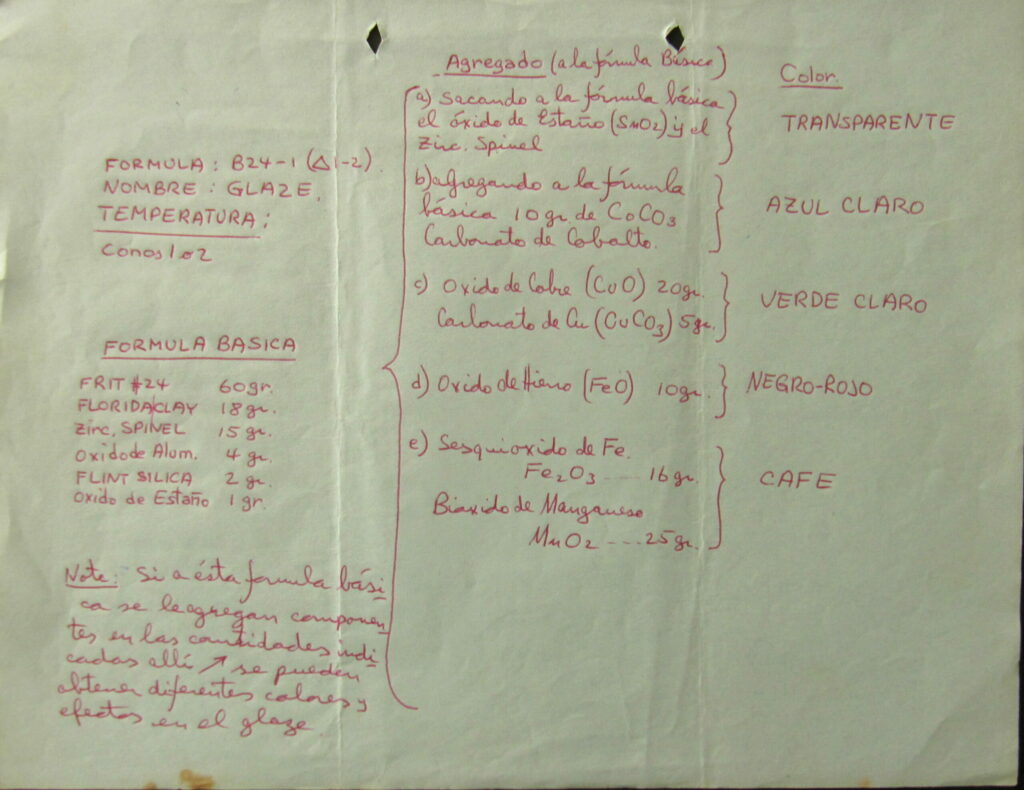 FORMULA : B24-1 (△1-2)
NOMBRE : GLAZE.
TEMPERATURA :
Conos 1 o 2
FORMULA BASICA
FRIT #24 60gr.
FLORIDA CLAY 18 gr.
Zinc, SPINEL 15 gr.
Oxido de Alum. 4 gr.
FLINT SILICA 2 gr.
Oxido de Estaño 1 gr.
Nota: Si a ésta formula bási
ca se le agregan componen
tes en las cantidades indi
cadas allí ↗ se pueden
obtener diferentes colores y
efectos en el glaze.
Agregado (a la fórmula Básica)
Color.
a) Sacando a la fórmula básica
el óxido de Estaño (SnO2) y el
Zinc. Spinel
TRANSPARENTE
b) agregando a la fórmula
básica 10 gr de CoCO3
Carbonato de Cobalto.
AZUL CLARO
c) Oxido de Cobre (CuO) 20gr.
Carbonato de Cu (CuCO3) 5gr.
VERDE CLARO
d) Oxido de Hierro (FeO) 10gr.
NEGRO-ROJO
e) Sesquioxido de Fe.
Fe2O3 ..... 16 gr.
Bioxido de Manganeso
MnO2 .... 25 gr.
CAFE